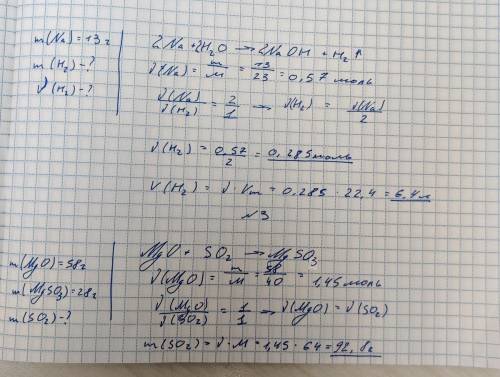 m(Na)=13г
m(H₂)-?
√(H₂)-?
2Na+2H₂O → 2NaOH + H₂↑
√(Na) = m/M = 13/23 = 0,57 моль
√(Na)/√(H₂) = 2/1 → √(H₂) = √(Na)/2
√(H₂) = 0,57/2 = 0,285 моль
V(H₂) = √ · Vm = 0,285 · 22,4 = 6,4 л
№3
m(MgO)=58г
m(MgSO₃)=28г
m(SO₂)-?
MgO + SO₂ → MgSO₃
√(MgO) = m/M = 58/40 = 1,45 моль
√(MgO)/√(SO₂) = 1/1 → √(MgO) = √(SO₂)
m(SO₂) = √·M = 1,45 · 64 = 92,8г